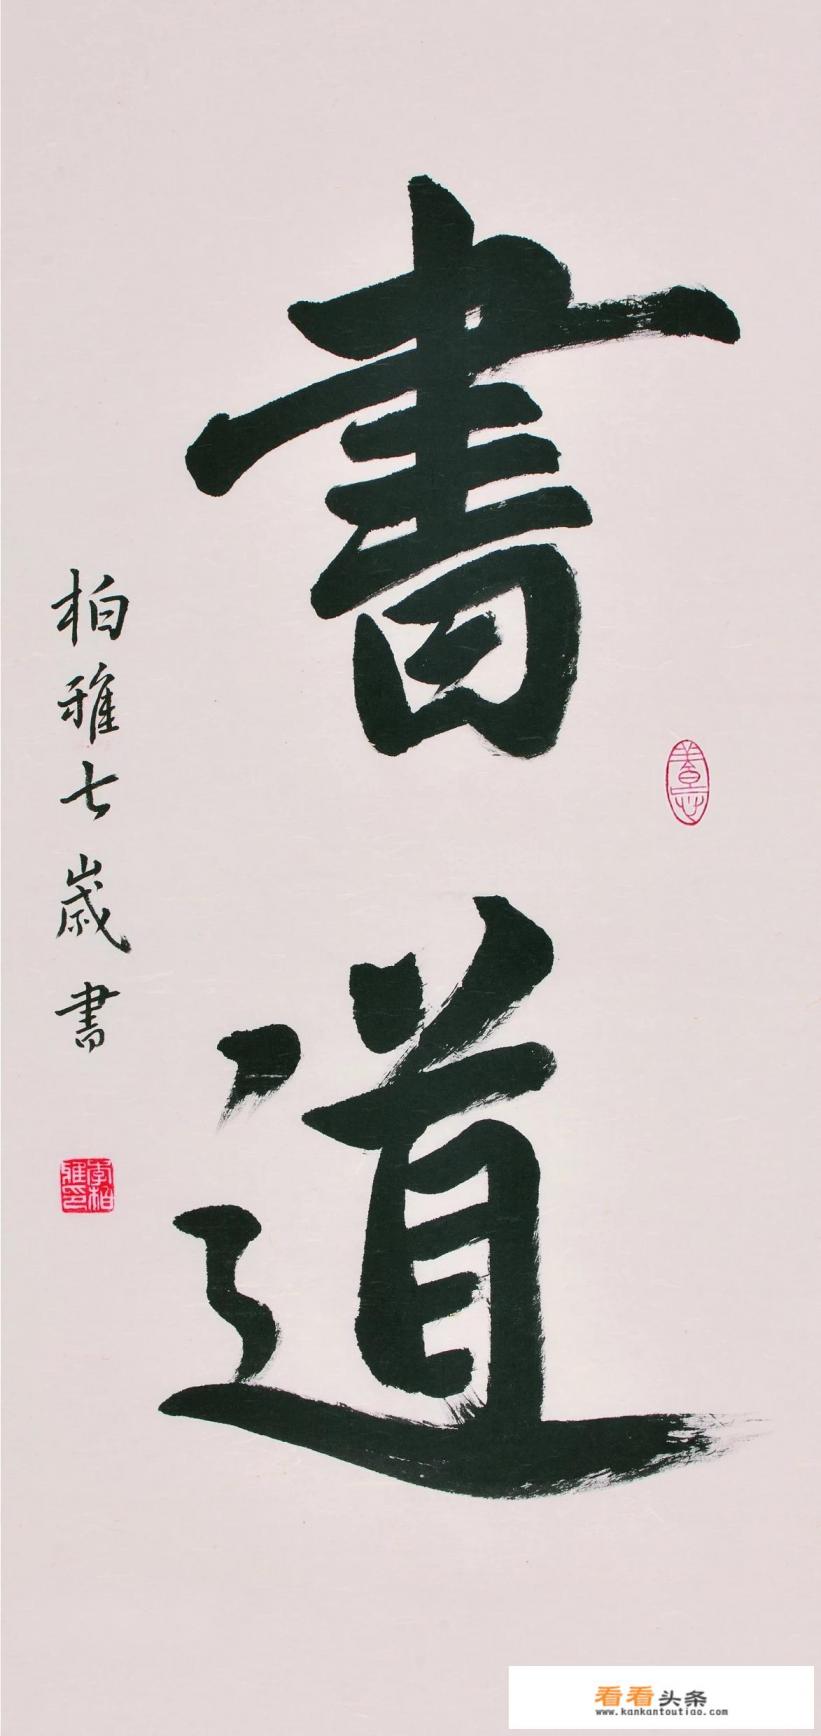 書道
柏雅七歳書
李柏雅印
善意
看看头条
www.kankantoutiao.com